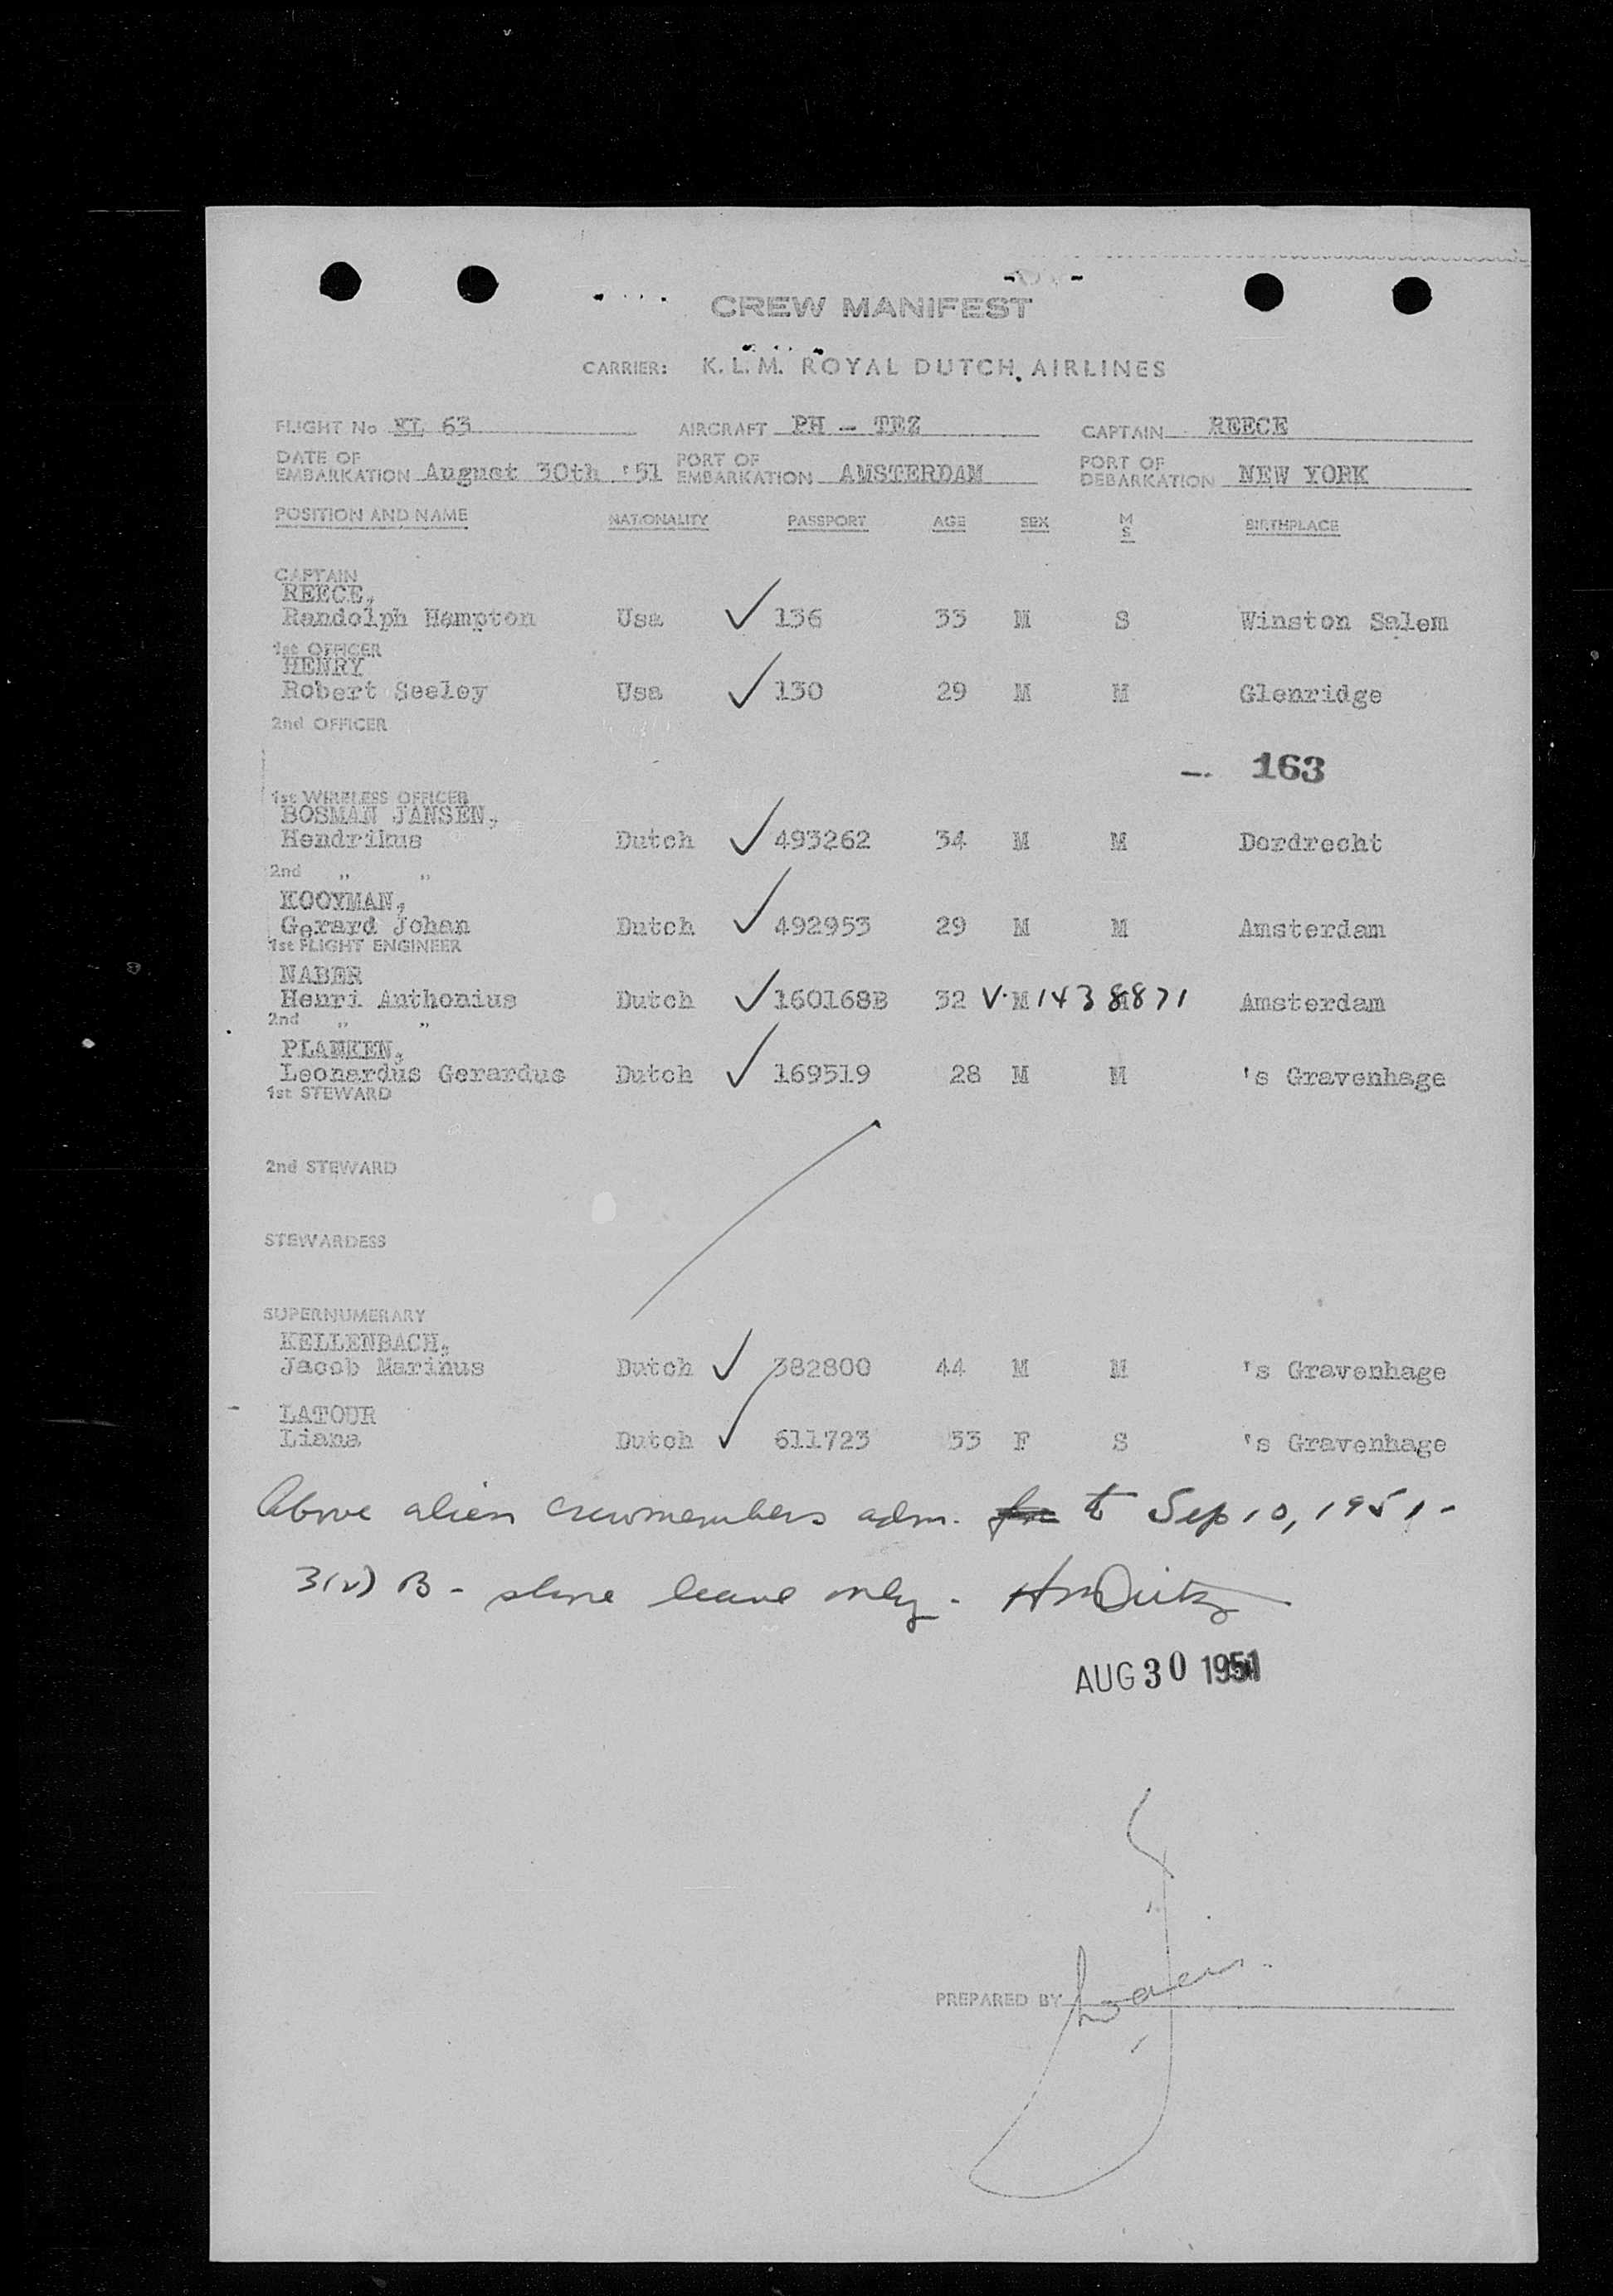 CREW MANIFEST
CARRIER: K. L. M. ROYAL DUTCH AIRLINES
FLIGHT No KL 63 AIRCRAFT PH - TEZ CAPTAIN REECE
DATE OF EMBARKATION August 30th '51 PORT OF EMBARKATION AMSTERDAM PORT OF DEBARKATION NEW YORK
POSITION AND NAME NATIONALITY PASSPORT AGE SEX M S BIRTHPLACE
CAPTAIN
REECE,
Randolph Hampton Usa ✓ 136 33 M S Winston Salem
1st OFFICER
HENRY
Robert Seeley Usa ✓ 130 29 M M Glenridge
2nd OFFICER
163
1st WIRELESS OFFICER
BOSMAN JANSEN,
Hendrikus Dutch ✓ 493262 34 M M Dordrecht
2nd " "
KOOYMAN,
Gerard Johan Dutch ✓ 492953 29 M M Amsterdam
1st FLIGHT ENGINEER
NABER
Henri Anthonius Dutch ✓ 160168B 32 V. M 1438871 Amsterdam
2nd " "
PLANKEN,
Leonardus Gerardus Dutch ✓ 169519 28 M M 's Gravenhage
1st STEWARD
2nd STEWARD
STEWARDESS
SUPERNUMERARY
KELLENBACH,
Jacob Marinus Dutch ✓ 382800 44 M M 's Gravenhage
LATOUR
Liana Dutch ✓ 611723 33 F S 's Gravenhage
Above alien crewmembers adm. to Sep 10, 1951 -
3(v) B - shore leave only.
AUG 30 1951
PREPARED BY